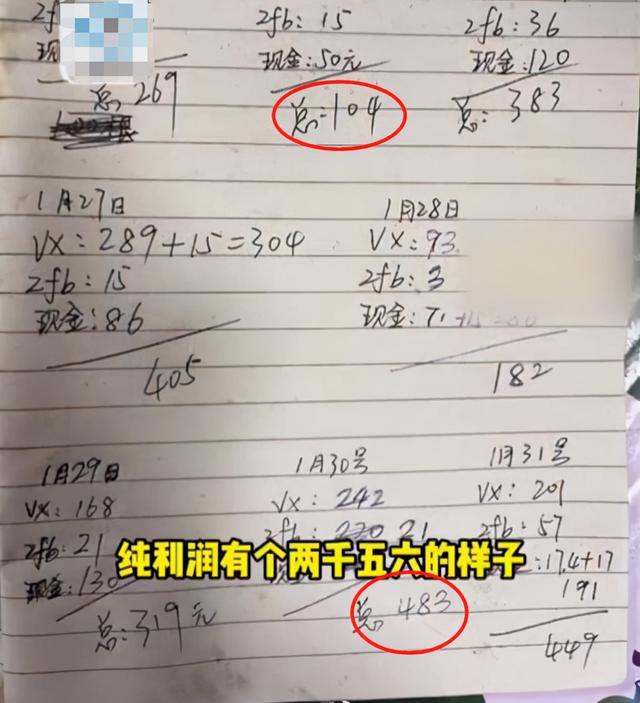 zfb: 15
现金: 50元
总: 104
zfb: 36
现金: 120
总: 383
总 269
1月27日
VX: 289+15=304
zfb: 15
现金: 86
405
1月28日
VX: 93
zfb: 3
现金: 71+15=86
182
1月29日
VX: 168
zfb: 21
现金: 130
总: 319元
1月30号
VX: 242
zfb: 21
总 483
1月31号
VX: 201
zfb: 57
: 174+17
191
449
纯利润有个两千五六的样子